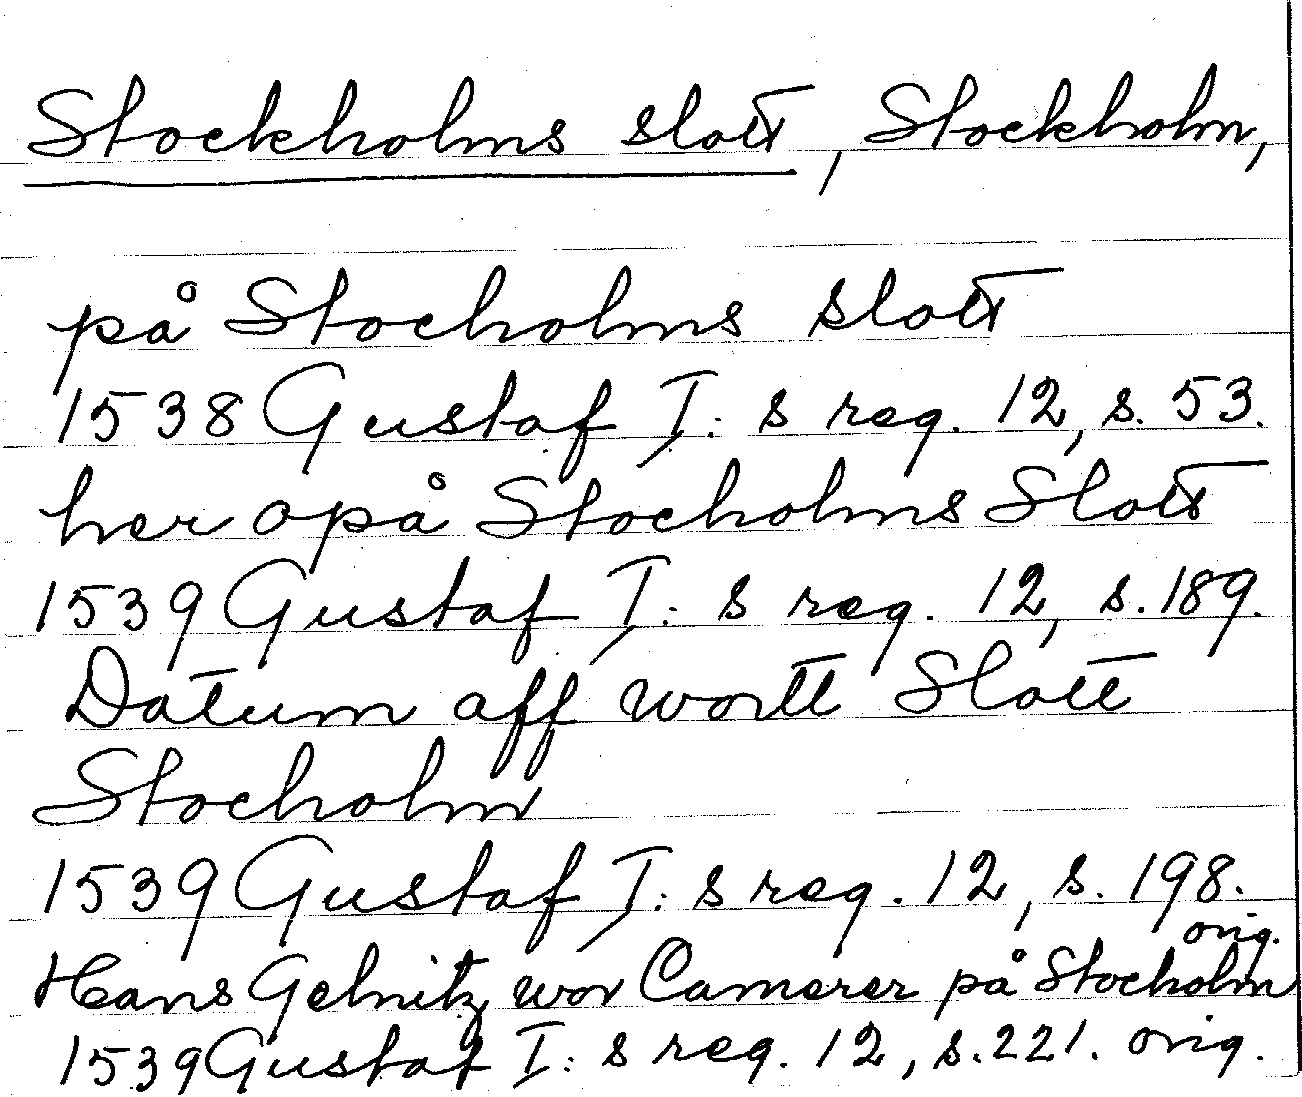 Stockholms slott, Stockholm,
på Stocholms slott
1538 Gustaf I: s reg. 12, s. 53.
her opå Stocholms Slott
1539 Gustaf I: s reg. 12, s. 189.
Datum aff wortt Slott
Stocholm
1539 Gustaf I: s reg. 12, s. 198.
orig.
Hans Gelnitz wor Camerer på Stocholm
1539 Gustaf I: s reg. 12, s. 221. orig.